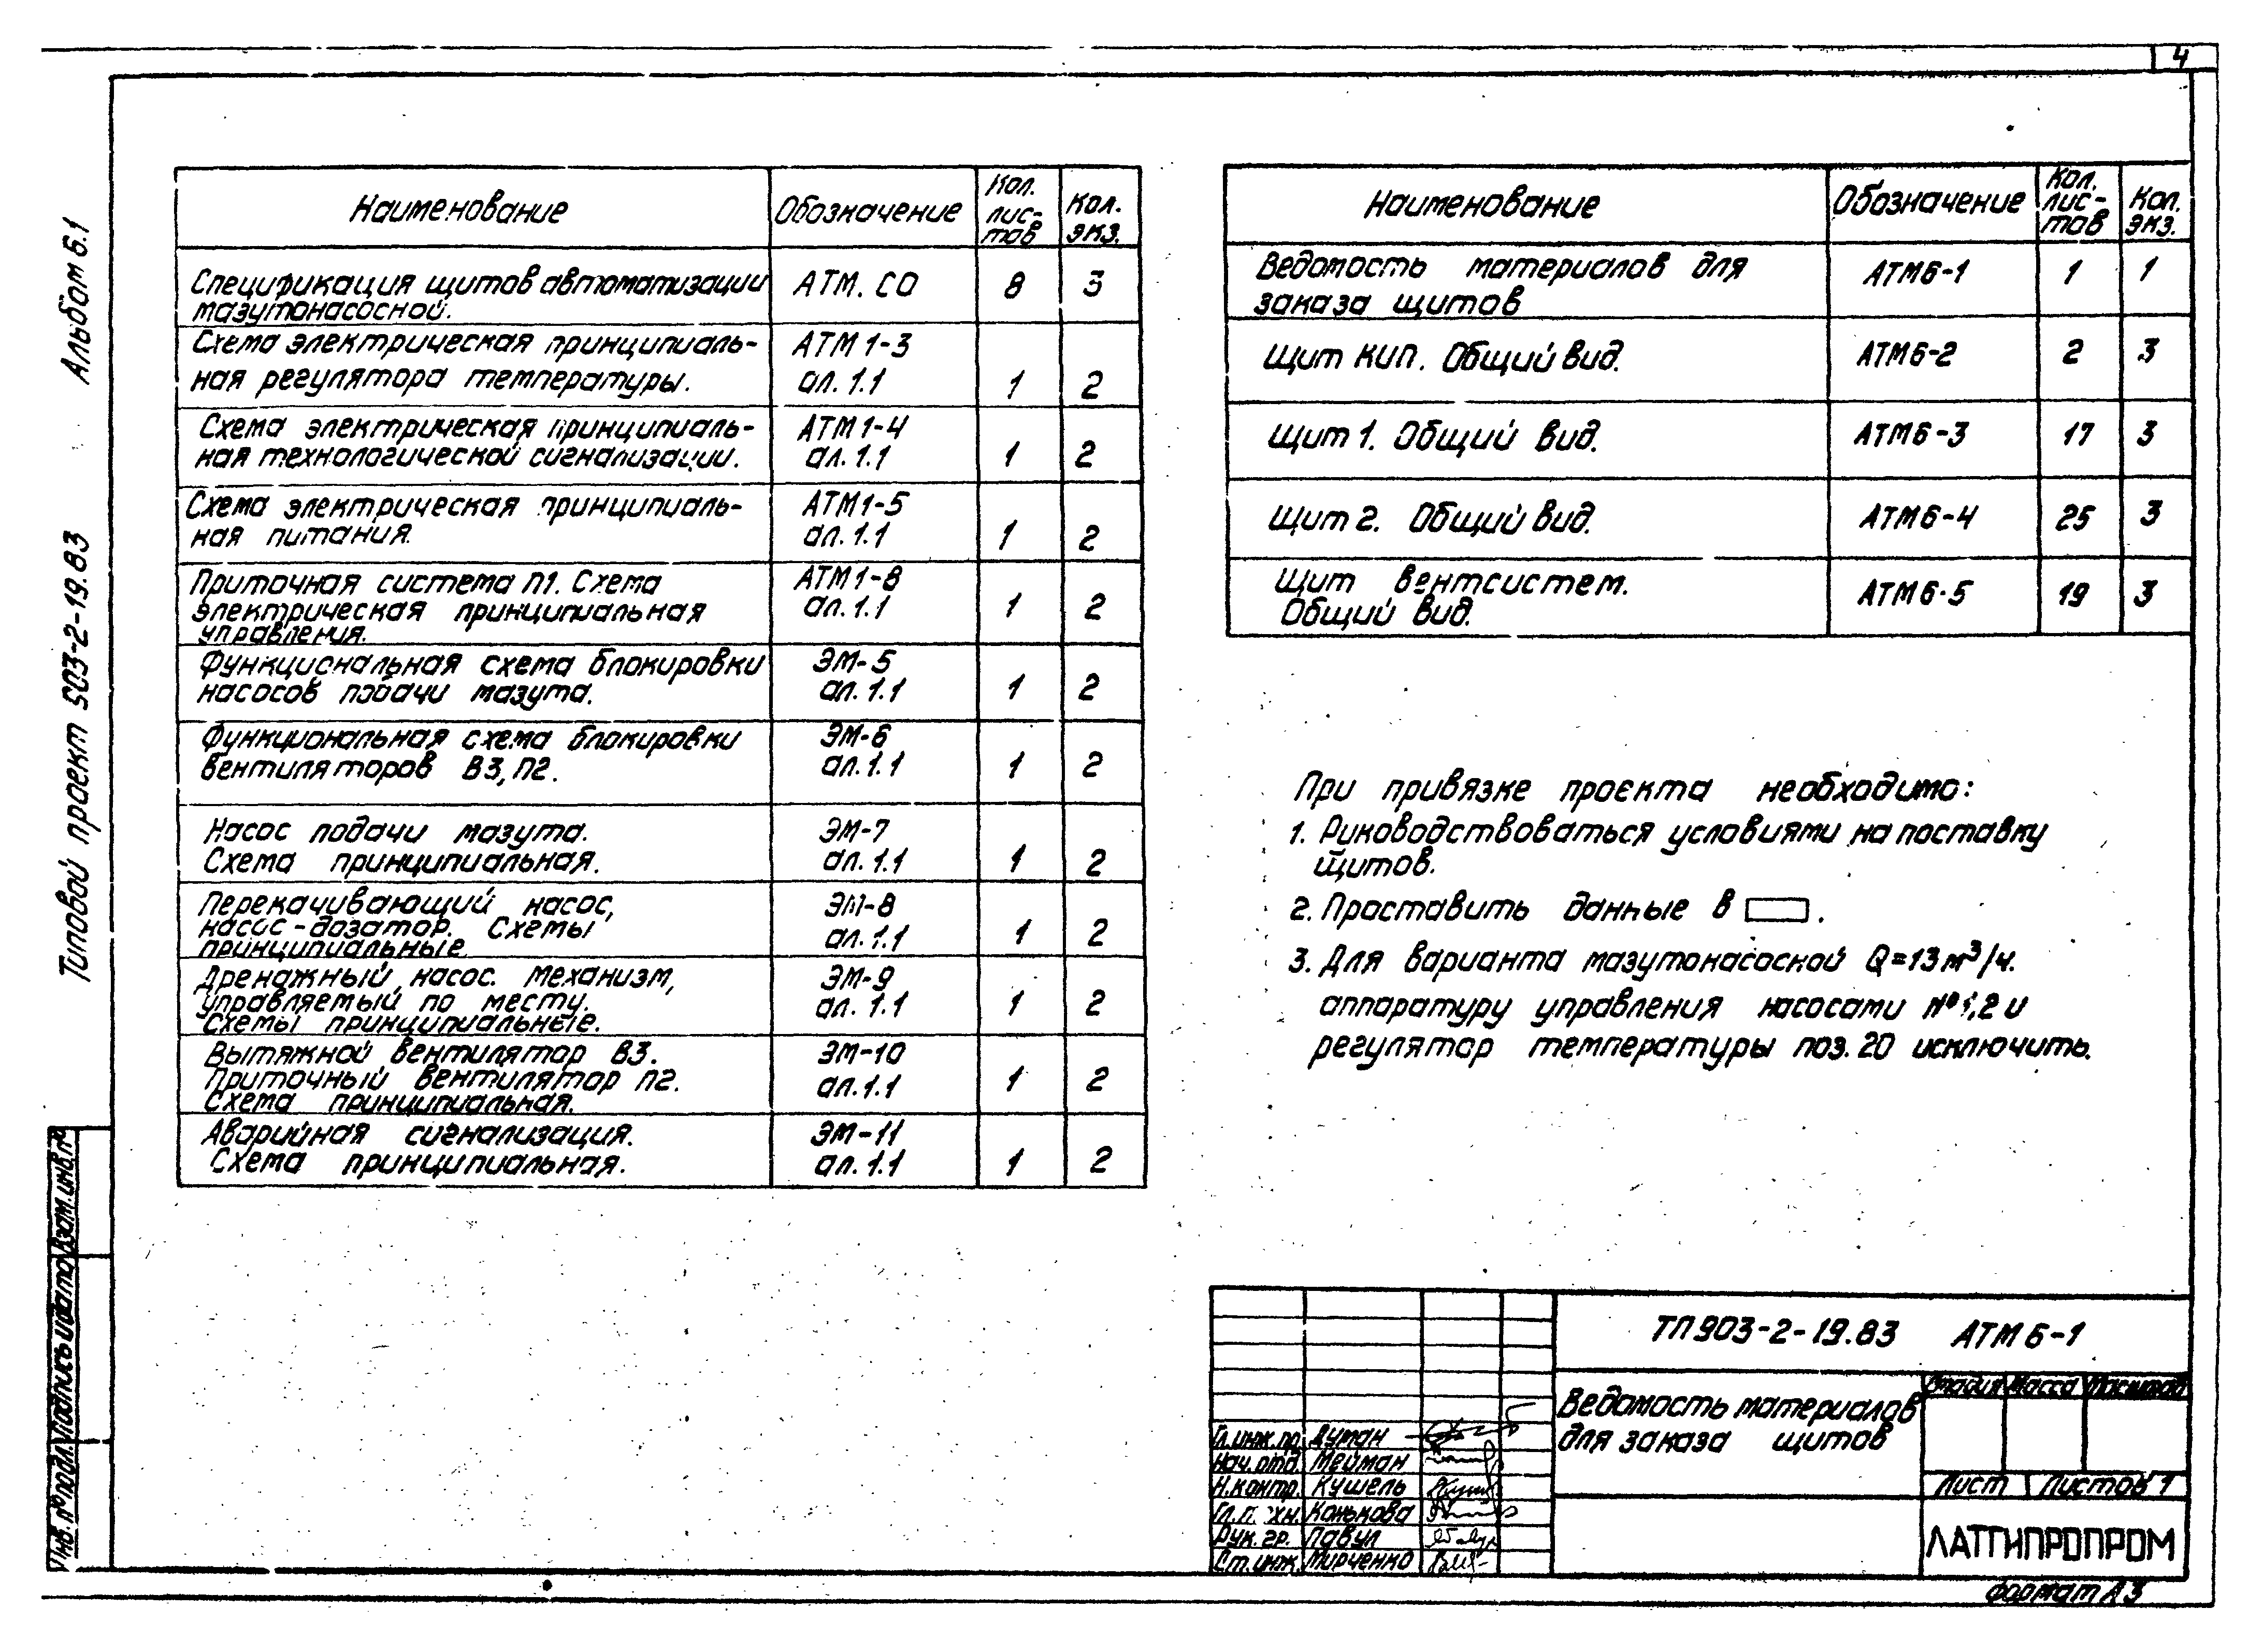 4
Альбом 6.1
Типовой проект 903-2-19.83
Наименование
Обозначение
Кол.
лис-
тов
Кол.
экз.
Спецификация щитов автоматизации
мазутонасосной.
АТМ. СО
8
3
Схема электрическая принципиаль-
ная регулятора температуры.
АТМ 1-3
ал. 1.1
1
2
Схема электрическая принципиаль-
ная технологической сигнализации.
АТМ 1-4
ал. 1.1
1
2
Схема электрическая принципиаль-
ная питания.
АТМ1-5
ал. 1.1
1
2
Приточная система П1. Схема
электрическая принципиальная
управления.
АТМ 1-8
ал. 1.1
1
2
Функциональная схема блокировки
насосов подачи мазута.
ЭМ-5
ал. 1.1
1
2
Функциональная схема блокировки
вентиляторов В3, П2.
ЭМ-6
ал. 1.1
1
2
Насос подачи мазута.
Схема принципиальная.
ЭМ-7
ал. 1.1
1
2
Перекачивающий насос,
насос-дозатор. Схемы
принципиальные
ЭМ-8
ал. 1.1
1
2
Дренажный насос. Механизм,
управляемый по месту.
Схемы принципиальные.
ЭМ-9
ал. 1.1
1
2
Вытяжной вентилятор В3.
Приточный вентилятор П2.
Схема принципиальная.
ЭМ-10
ал. 1.1
1
2
Аварийная сигнализация.
Схема принципиальная.
ЭМ-11
ал. 1.1
1
2
Наименование
Обозначение
Кол.
лис-
тов
Кол.
экз.
Ведомость материалов для
заказа щитов
АТМ6-1
1
1
Щит КИП. Общий вид.
АТМ6-2
2
3
Щит 1. Общий вид.
АТМ6-3
17
3
Щит 2. Общий вид.
АТМ6-4
25
3
Щит вентсистем.
Общий вид.
АТМ6-5
19
3
При привязке проекта необходимо:
1. Руководствоваться условиями на поставку
щитов.
2. Проставить данные в .
3. Для варианта мазутонасосной Q=13 м³/ч.
аппаратуру управления насосами №1,2 и
регулятор температуры поз. 20 исключить.
Инв. № подл. Подпись и дата Взам. инв. №
ТП 903-2-19.83 АТМ 6-1
Ведомость материалов
для заказа щитов
Стадия Масса Масштаб
Лист Листов 1
ЛАТГИПРОПРОМ
Гл. инж. пр. Думан
Нач. отд. Мейман
Н. контр. Кушель
Конькова
Рук. гр. Павул
Ст. инж. Мирченко
Формат А3